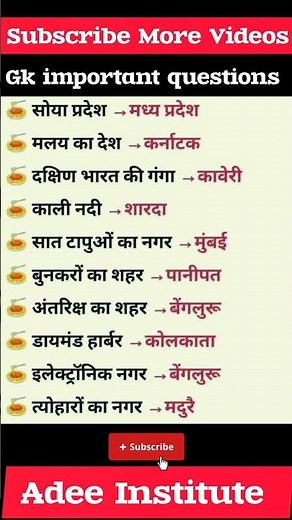 Subscribe More Videos
Gk important questions
सोया प्रदेश →मध्य प्रदेश
मलय का देश →कर्नाटक
दक्षिण भारत की गंगा →कावेरी
काली नदी →शारदा
सात टापुओं का नगर →मुंबई
बुनकरों का शहर →पानीपत
अंतरिक्ष का शहर →बेंगलुरू
डायमंड हार्बर →कोलकाता
इलेक्ट्रॉनिक नगर →बेंगलुरू
त्योहारों का नगर →मदुरै
+ Subscribe
Adee Institute